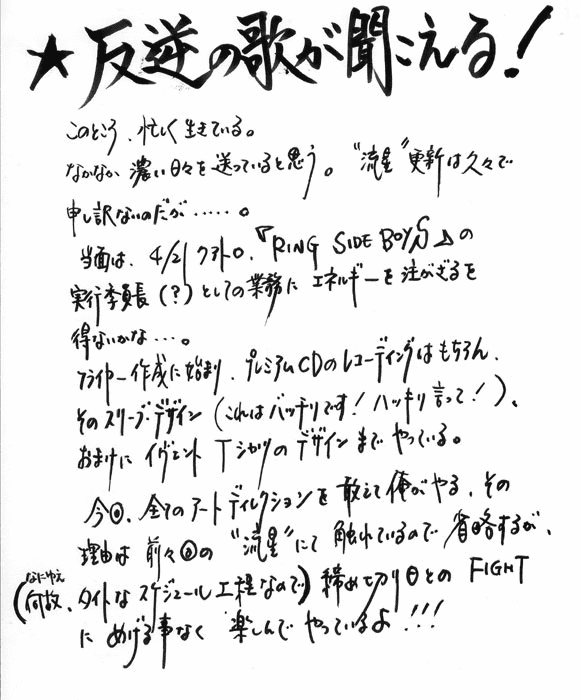 ★反逆の歌が聞こえる!
このところ、忙しく生きている。
なかなか濃い日々を送っていると思う。“流星”更新は久々で
申し訳ないのだが……。
当面は、4/21クアトロ、『RING SIDE BOYS』の
実行委員長(?)としての業務にエネルギーを注がざるを
得ないかな…。
フライヤー作成に始まり、プレミアムCDのレコーディングはもちろん、
そのスリーブ・デザイン(これはバッチリです!ハッキリ言って!)、
おまけにイヴェントTシャツのデザインまでやっている。
今回、全てのアートディレクションを敢えて俺がやる、その
理由は前々回の“流星”にて触れているので省略するが、
(何故、タイトなスケジュール工程なので)締め切り日との FIGHT
なにゆえ
にめげる事なく楽しんでやっているよ!!!